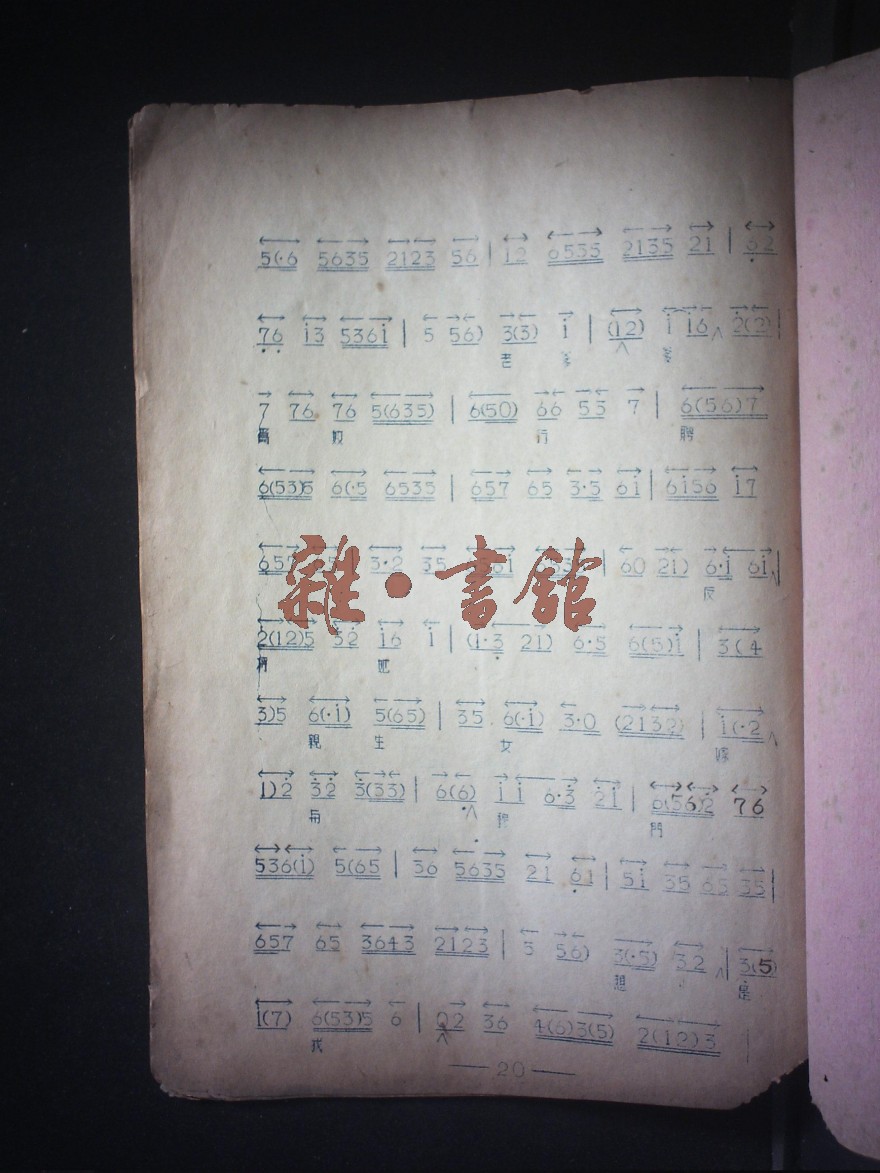 5(·6 5635 2123 56 | i2 6535 2135 21 | 62
76 i3 536i | 5 56) 3(3) i | (12) i i6 2(2) |
老 爹 爹
7 76 76 5(635) | 6(50) 66 55 7 | 6(56)7
爲 奴 行 聘
6(53)5 6(·5 6535 | 657 65 3·5 6i | 6i56 i7
3·2 35 | 60 21) 6·i 6i |
反
2(12)5 32 i6 i | (1·3 21) 6·5 6(5)i | 3(4
把
3)5 6(·i) 5(65) | 35 6(·i) 3·0 (2132) | i(·2
親 生 女 嫁
1)2 32 3(33) | 6(6) i i 6·3 2i | 6(56)2 76
與 門
536(i) 5(65 | 36 5635 21 61 | 5i 35 65 35 |
657 65 3643 2123 | 5 56) 3(·5) 32 | 3(5)
想 是
1(7) 6(53)5 6 | 02 36 4(6)3(5) 2(12)3 |
戎
—20—
雜·書館